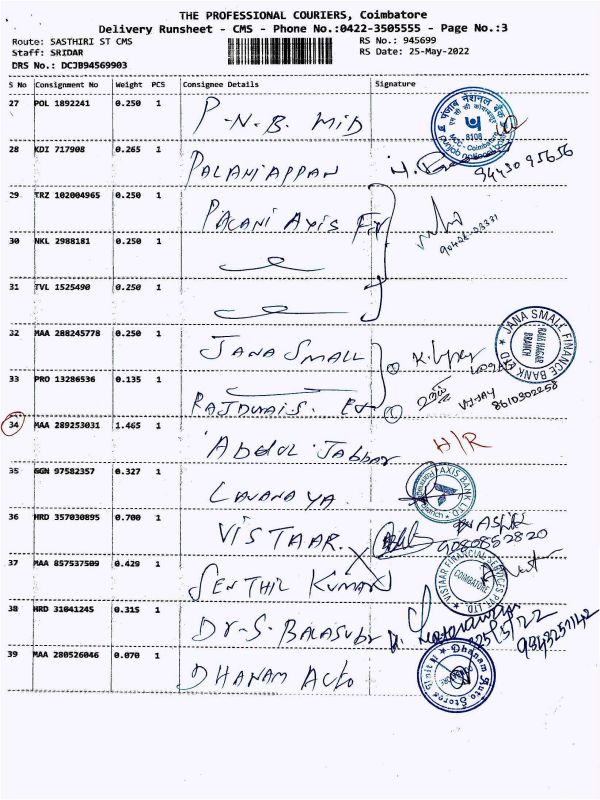 THE PROFESSIONAL COURIERS, Coimbatore
Delivery Runsheet - CMS - Phone No.:0422-3505555 - Page No.:3
Route: SASTHIRI ST CMS
RS No.: 945699
Staff: SRIDAR
RS Date: 25-May-2022
DRS No.: DCJB94569903
S No Consignment No Weight PCS Consignee Details Signature
27 POL 1892241 0.250 1 P-N.B. MID
पंजाब नैशनल बैंक
8108
MCC-Coimbatore
punjab national bank
28 KDI 717908 0.265 1 PALANIAPPAN
94430 95656
29 TRZ 102004965 0.250 1 PALANI AXIS
30 NKL 2988181 0.250 1
31 TVL 1525490 0.250 1
32 MAA 288245778 0.250 1 JANA SMALL
JANA SMALL FINANCE BANK LTD
RAM NAGAR
BRANCH
33 PRO 13286536 0.135 1 RAJDURAI S.
VIJAY
8610302258
34 MAA 289253031 1.465 1 Abdul Jabbar H/R
35 GGN 97582357 0.327 1 LAVANAYA
AXIS BANK LTD
36 HRD 357030895 0.700 1 VISTAAR
9080852820
37 MAA 857537509 0.429 1 SENTHIL KUMAR
VISTAAR FINANCIAL SERVICES PVT. LTD
COIMBATORE
38 HRD 31041245 0.315 1 Dr-S-BALASUBR
25/5/22
9343257142
39 MAA 280526046 0.070 1 DHANAM Auto
Dhanam Auto Stores